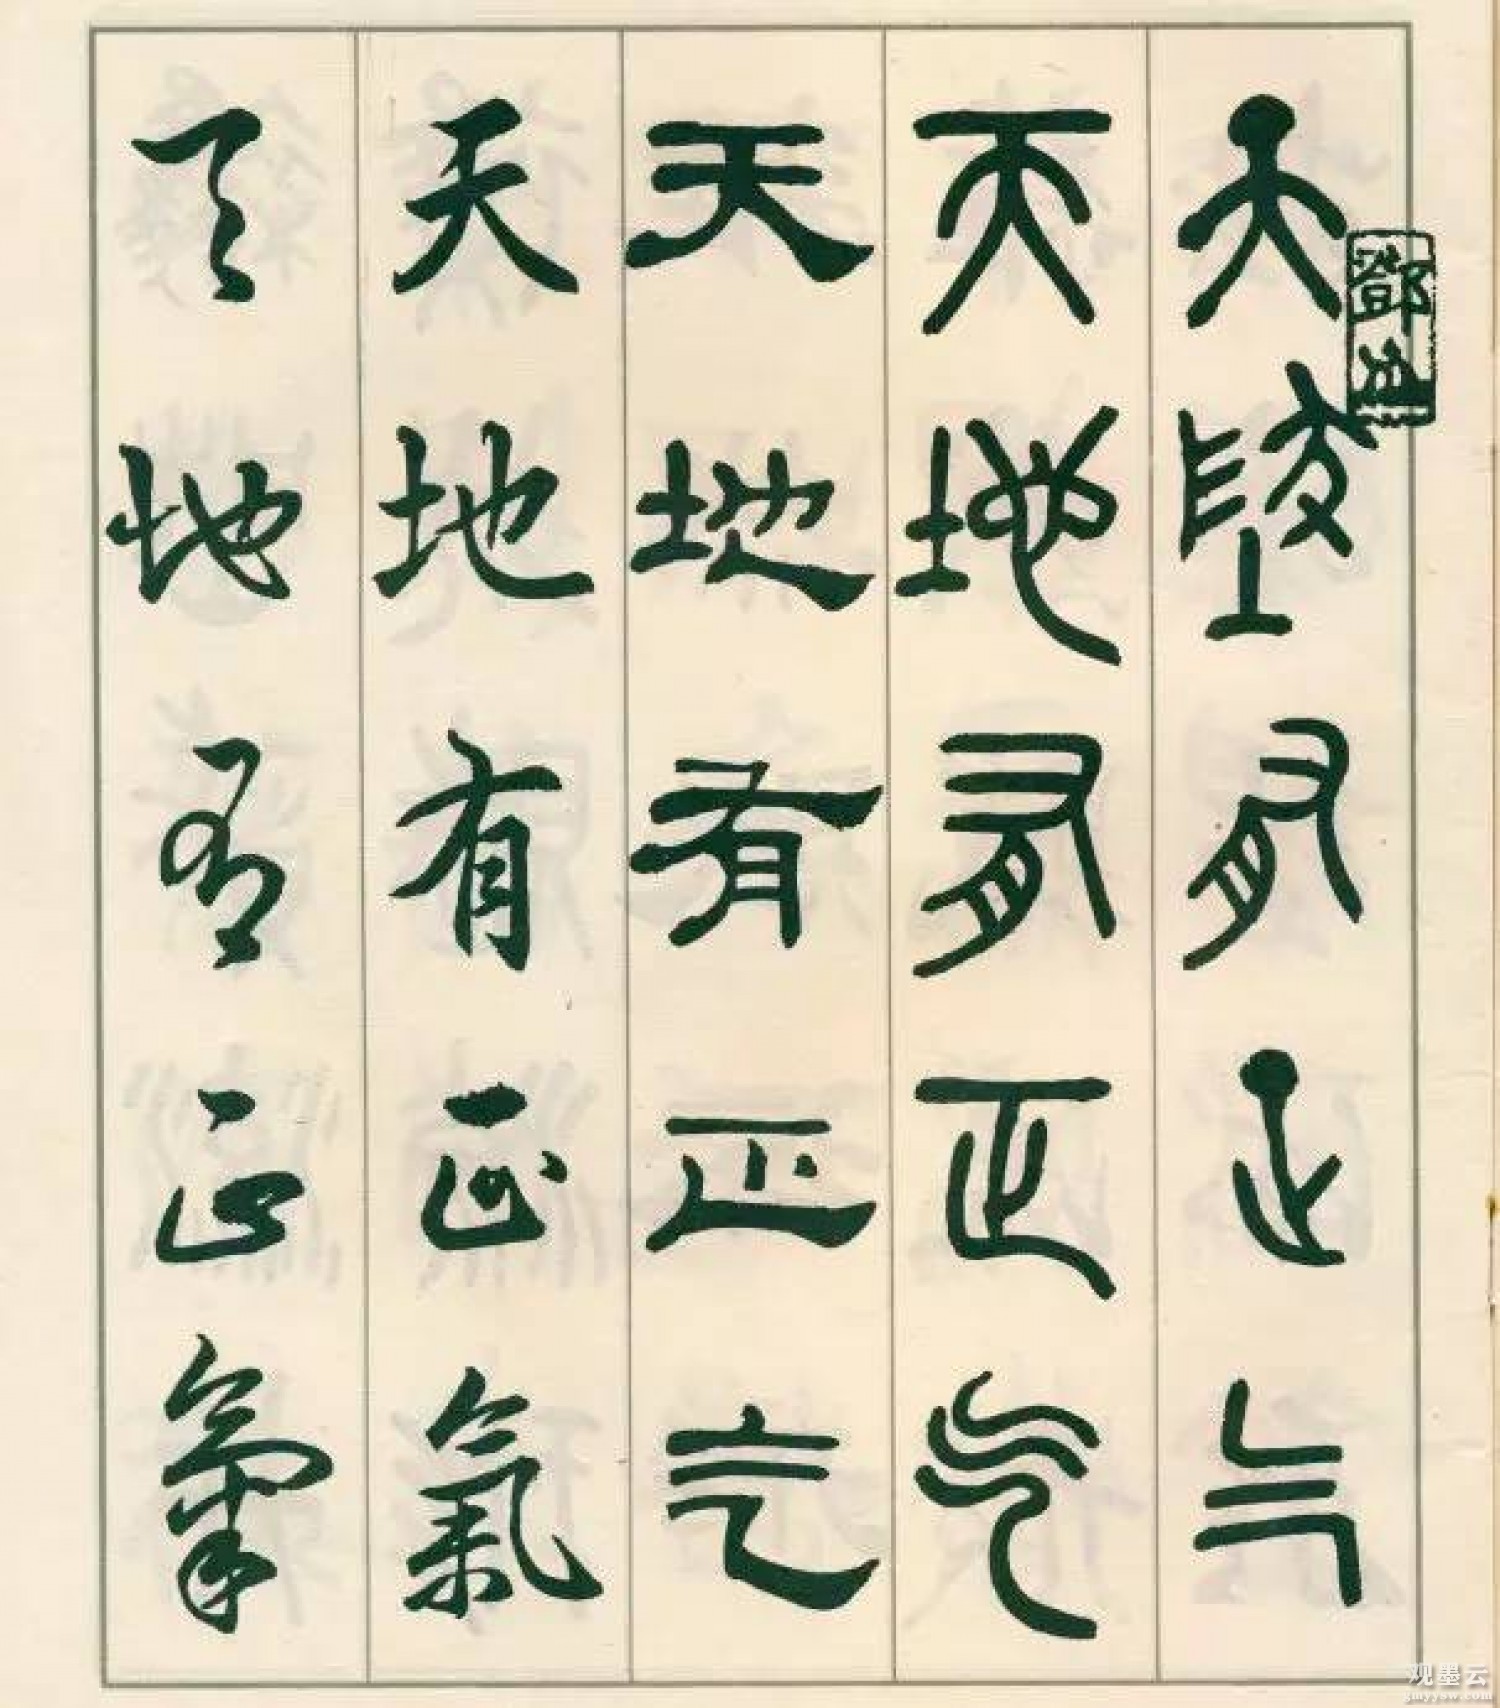 天墬有正气
天地有正气
天地有正气
天地有正氣
天地有正氣
鄧
观墨云
gmyysw.com